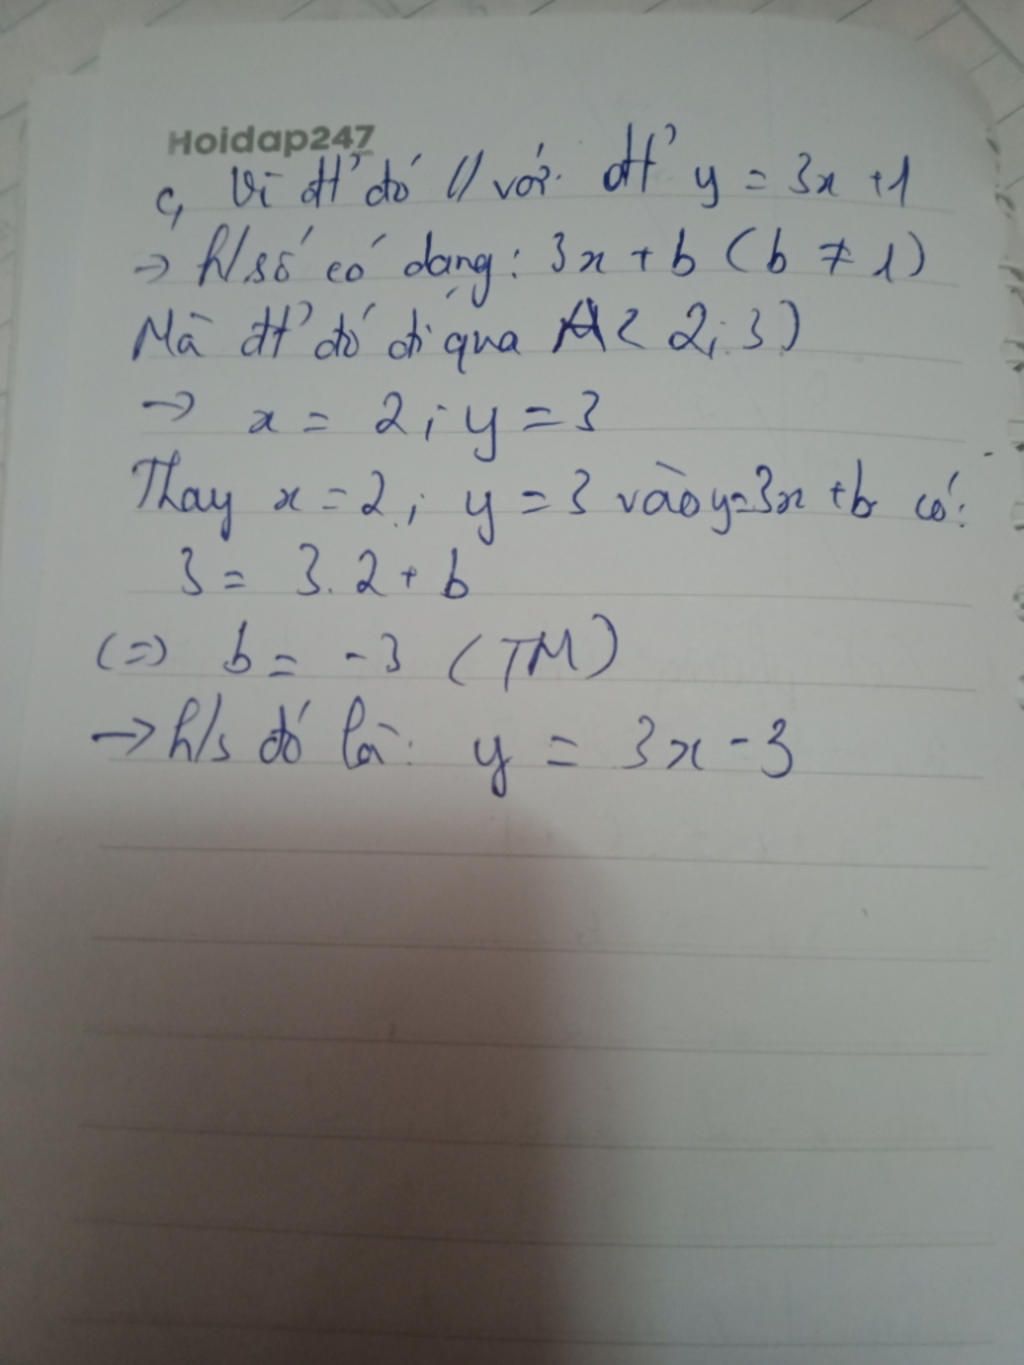 Hoidap247
c, Vì đt' đó // với đt' y = 3x + 1
→ h/số có dạng: 3x + b (b ≠ 1)
Mà đt' đó đi qua A(2; 3)
→ x = 2; y = 3
Thay x = 2; y = 3 vào y=3x + b có:
3 = 3.2 + b
(=) b = -3 (TM)
→ h/s đó là: y = 3x - 3